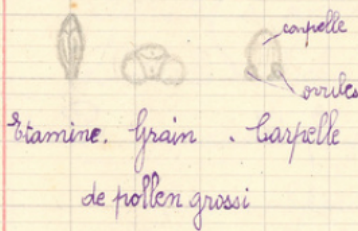 carpelle
ovules
Etamine. Grain . Carpelle
de pollen grossi